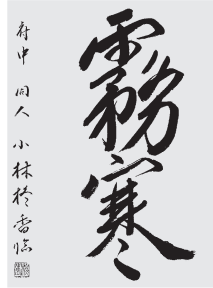 霧寒
府中 同人 小林柊雪臨